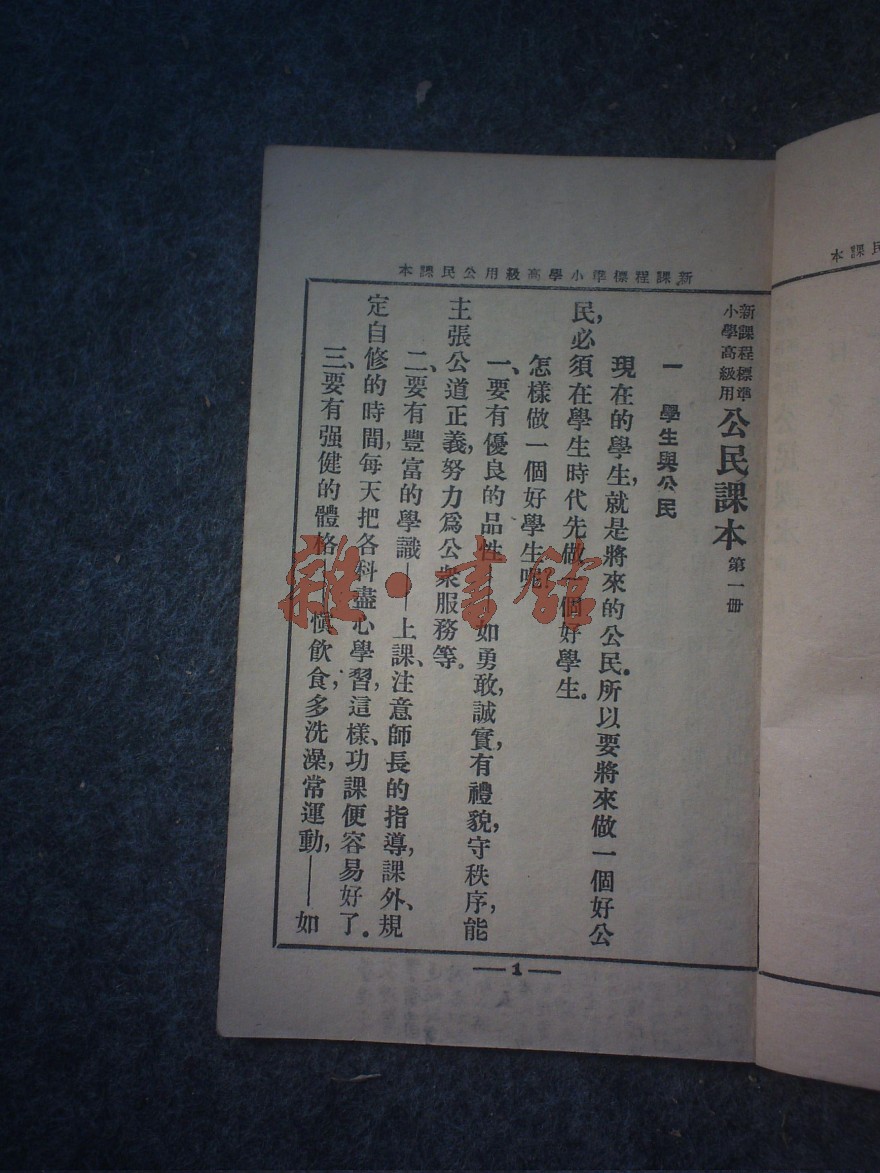 新課程標準小學高級用公民課本
新課程標準
小學高級用
公民課本 第一册
一 學生與公民
現在的學生，就是將來的公民。所以要將來做一個好公
民，必須在學生時代先做一個好學生。
怎樣做一個好學生呢
一、要有優良的品性——如勇敢，誠實，有禮貌，守秩序，能
主張公道正義，努力爲公衆服務等。
二、要有豐富的學識——上課、注意師長的指導，課外、規
定自修的時間，每天把各科盡心學習，這樣、功課便容易好了。
三、要有强健的體格——慎飲食，多洗澡，常運動，——如
—1—
雜·書館
民課本